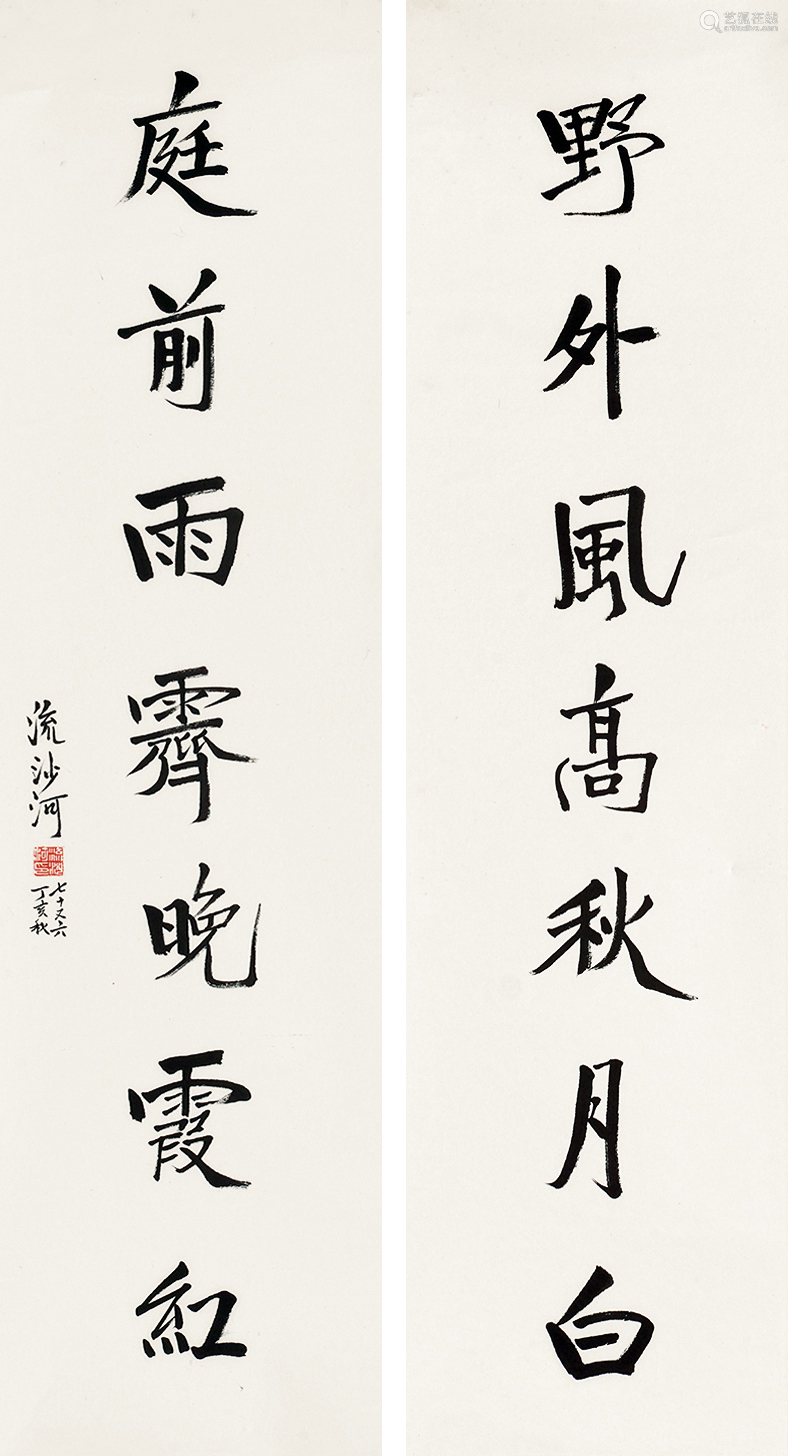 野外風高秋月白
庭前雨霽晚霞紅
流沙河
七十又六
丁亥秋
艺狐在线